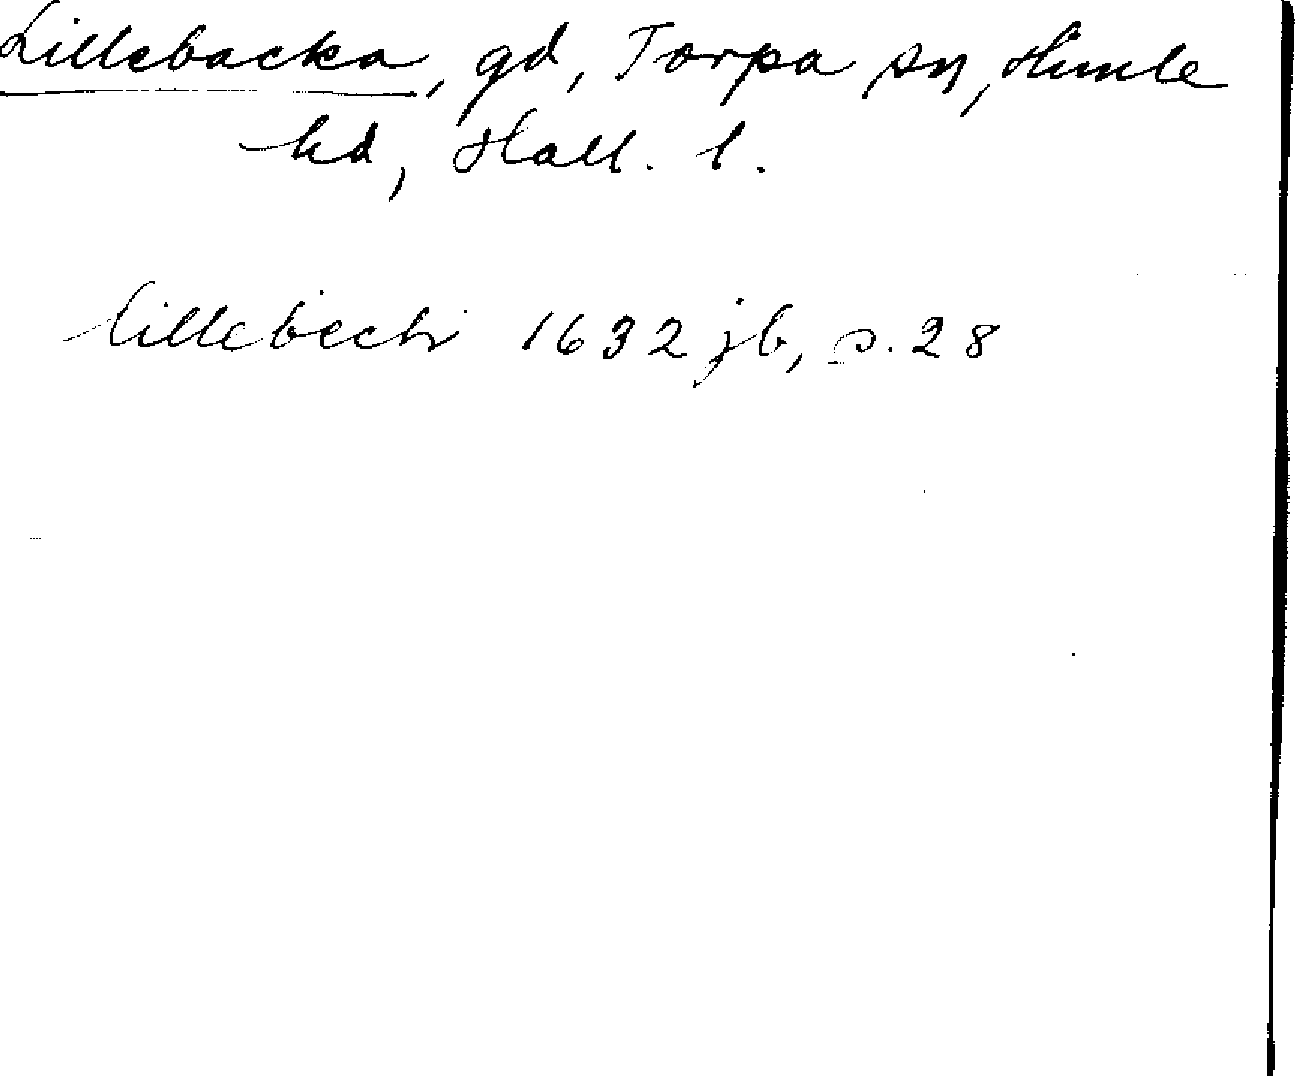 Lillebacka, gd, Torpa sn, Himle
hd, Hall. l.
Lillebech 1632 jb, s. 28